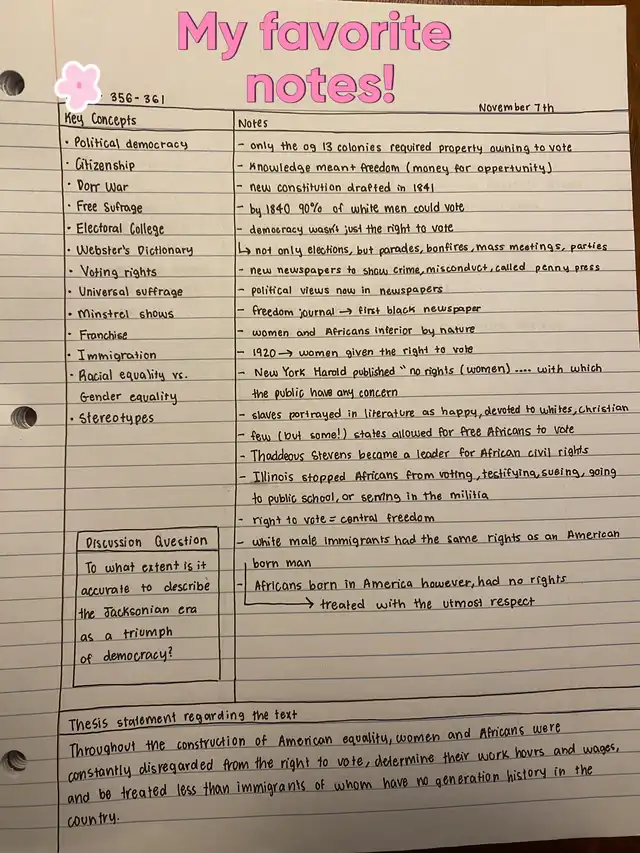 My favorite
notes!
356-361
November 7th
Key Concepts
· Political democracy
· Citizenship
· Dorr War
· Free Sufrage
· Electoral College
· Webster's Dictionary
· Voting rights
· Universal suffrage
· Minstrel shows
· Franchise
· Immigration
· Racial equality vs.
Gender equality
· Stereotypes
Discussion Question
To what extent is it
accurate to describe
the Jacksonian era
as a triumph
of democracy?
Notes
- only the og 13 colonies required property owning to vote
- Knowledge meant freedom (money for oppertunity)
- new constitution drafted in 1841
- by 1840 90% of white men could vote
- democracy wasn't just the right to vote
↳ not only elections, but parades, bonfires, mass meetings, parties
- new newspapers to show crime, misconduct, called penny press
- political views now in newspapers
- freedom journal → first black newspaper
- women and Africans inferior by nature
- 1920 → women given the right to vote
- New York Harold published "no rights (women) .... with which
the public have any concern
- slaves portrayed in literature as happy, devoted to whites, christian
- few (but some!) states allowed for free Africans to vote
- Thaddeous Stevens became a leader for African civil rights
- Illinois stopped Africans from voting, testifying, sueing, going
to public school, or serving in the militia
- right to vote = central freedom
- white male immigrants had the same rights as an American
born man
- Africans born in America however, had no rights
→ treated with the utmost respect
Thesis statement regarding the text
Throughout the construction of American equality, women and Africans were
constantly disregarded from the right to vote, determine their work hours and wages,
and be treated less than immigrants of whom have no generation history in the
country.